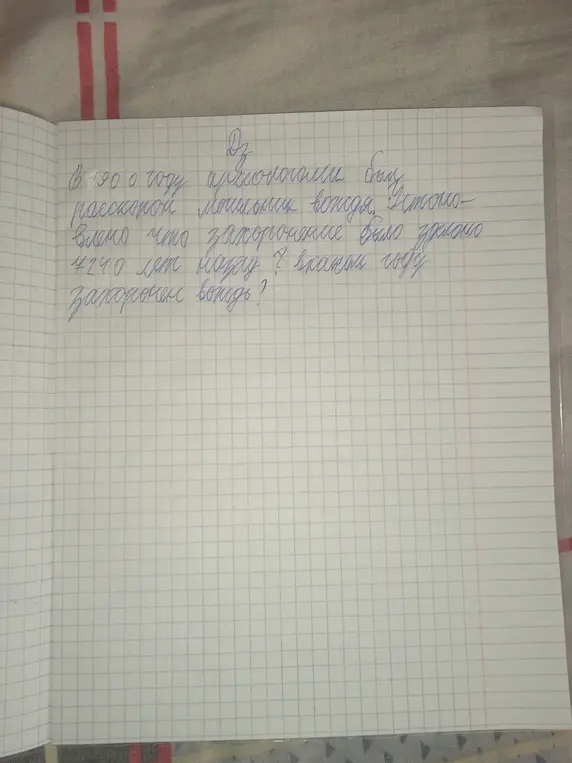 Дз
В 1900 году археологами был
расскопан могильник вождя. Устано-
влено что захоронение было зделано
7240 лет назад? в каком году
захоронен вождь?